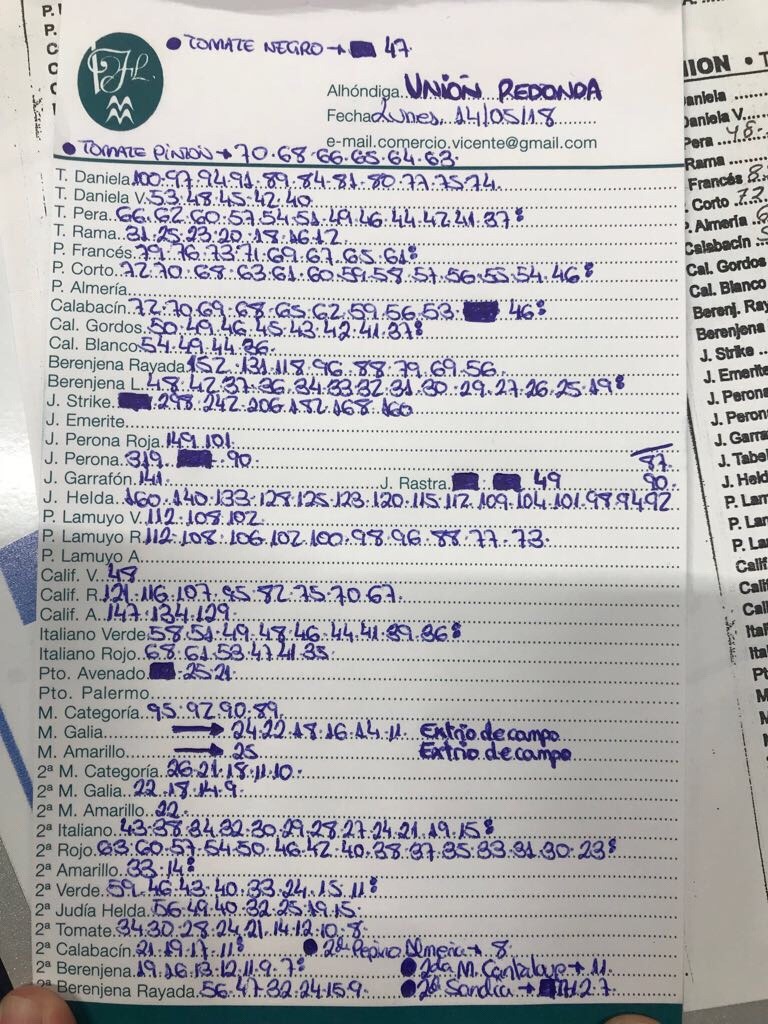 • TOMATE NEGRO → 47
Alhóndiga UNIÓN REDONDA
Fecha Lunes, 14/05/18
e-mail.comercio.vicente@gmail.com
• TOMATE PINTÓN → 70·68·66·65·64·63
T. Daniela 100·97·94·91·89·84·81·80·77·75·74
T. Daniela V. 53·48·45·42·40
T. Pera 66·62·60·57·54·51·49·46·44·42·41·37
T. Rama 31·25·23·20·18·16·12
P. Francés 79·76·73·71·69·67·65·61
P. Corto 72·70·68·63·61·60·59·58·57·56·55·54·46
P. Almería
Calabacín 72·70·69·68·65·62·59·56·53 46
Cal. Gordos 50·49·46·45·43·42·41·37
Cal. Blanco 54·49·44·36
Berenjena Rayada 152·131·118·96·88·79·69·56
Berenjena L. 48·42·37·36·34·33·32·31·30·29·27·26·25·19
J. Strike 298·242·206·182·168·160
J. Emerite
J. Perona Roja 149·101
J. Perona 319 90 87
J. Garrafón 141 J. Rastra 49 90
J. Helda 160·140·133·128·125·123·120·115·112·109·104·101·98·94·92
P. Lamuyo V. 112·108·102
P. Lamuyo R. 112·108·106·102·100·98·96·88·77·73
P. Lamuyo A.
Calif. V. 48
Calif. R. 121·116·107·95·82·75·70·67
Calif. A. 147·134·129
Italiano Verde 58·51·49·48·46·44·41·39·36
Italiano Rojo 68·61·53·47·41·35
Pto. Avenado 25·21
Pto. Palermo
M. Categoría 95·92·90·89
M. Galia → 24·22·18·16·14·11 Extrío de campo
M. Amarillo → 25 Extrío de campo
2ª M. Categoría 26·21·18·11·10
2ª M. Galia 22·18·14·9
2ª M. Amarillo 22
2ª Italiano 43·38·34·32·30·29·28·27·24·21·19·15
2ª Rojo 63·60·57·54·50·46·42·40·38·37·35·33·31·30·23
2ª Amarillo 33·14
2ª Verde 59·46·43·40·33·24·15·11
2ª Judía Helda 56·49·40·32·25·19·15
2ª Tomate 34·30·28·24·21·14·12·10·8
2ª Calabacín 21·19·17·11 • 2ª Pepino Almería → 8
2ª Berenjena 19·16·13·12·11·9·7 • 2da M. Cantaloup → 11
2ª Berenjena Rayada 56·47·32·24·15·9 • 2ª Sandía →